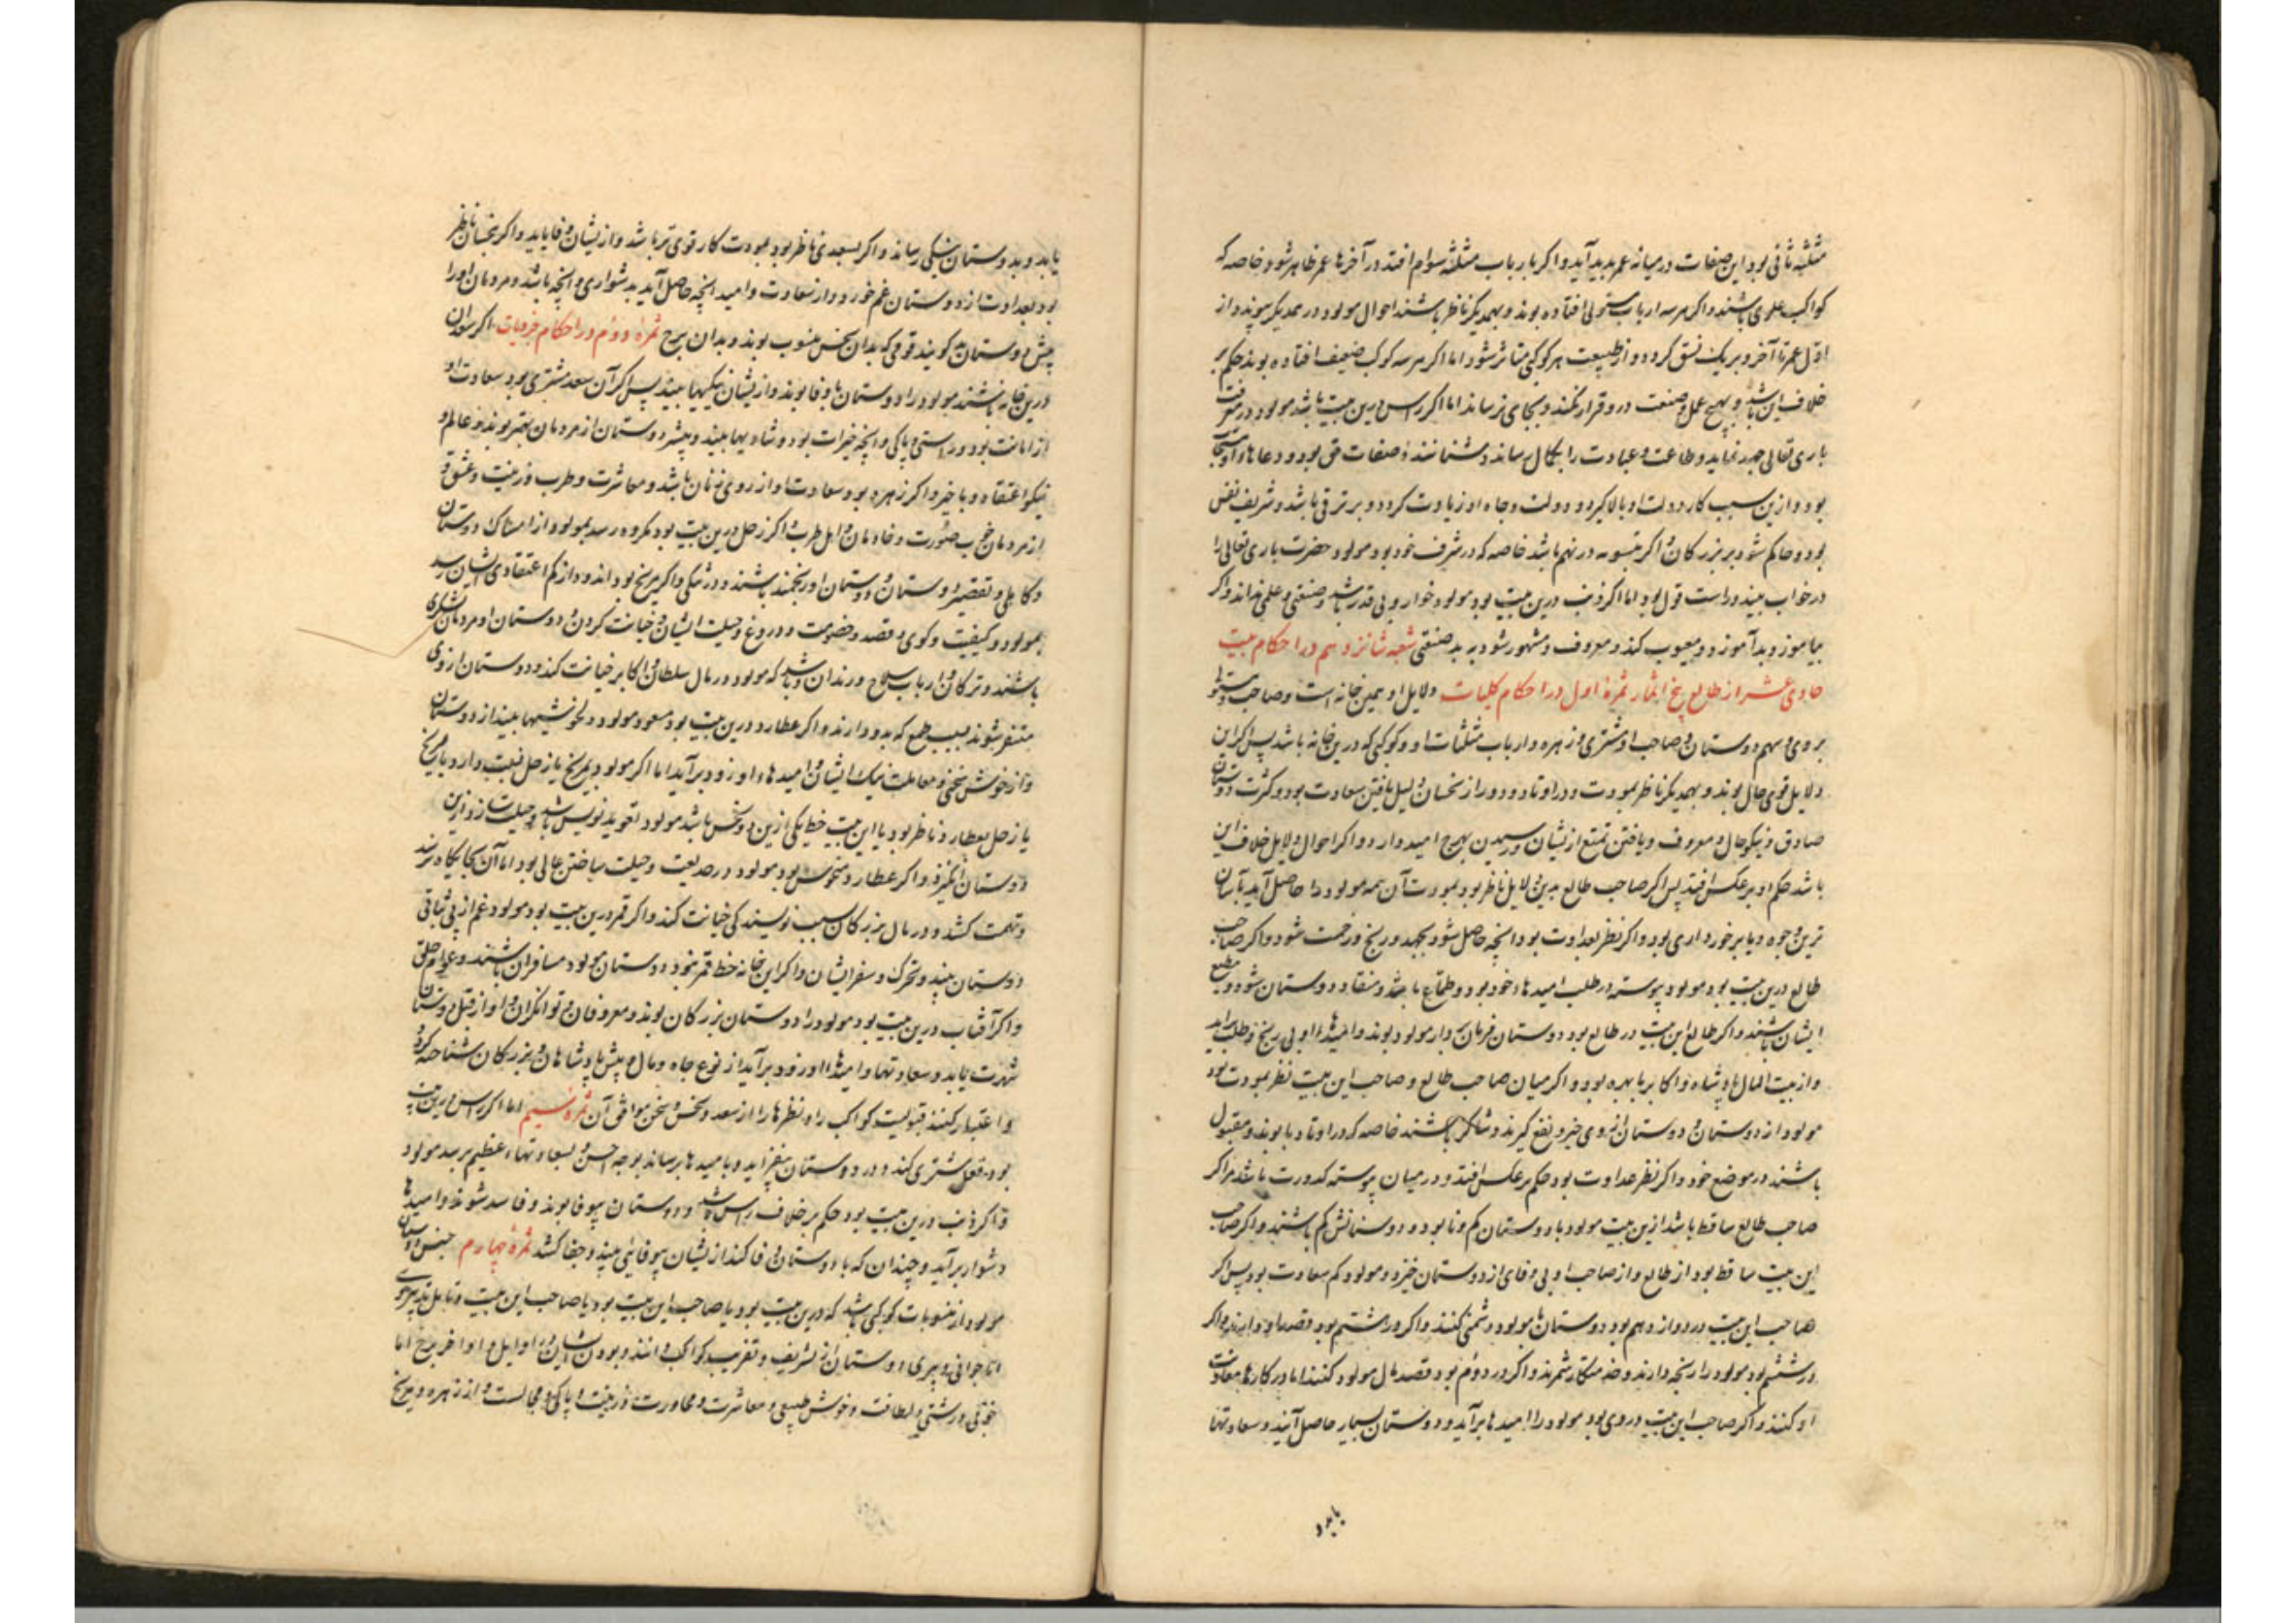 مثلثه ثانی بود این صفات در میانه عمر پدید آید و اکر بارباب مثلثه سوام افتد در آخرها عمر ظاهر شود خاصه که
کواکب علوی باشند و اکر هرسه ارباب مستولی افتاده بوند و بهمدیکر ناظر باشند احوال مولود در همدیکر پیوندد از
اول عمر تا آخر و بر یک نسق کردد و از طبیعت هر کوکبی متاثر شود اما اکر هرسه کوکب ضعیف افتاده بوند حکم بر
خلاف این باشد و بهیچ عمل و صنعت در و قرار نکند و بجای نرساند اما اکر راس درین بیت باشد مولود در معرفت
باری تعالی جهد نماید و طاعت و عبادت را بکمال رساند و شناسنده صفات حق بود و دعاها او مستجاب
بود و ازین سبب کار دولت او بالا کیرد و دولت و جاه او زیادت کردد و بر ترقی باشد و شریف نفس
بود و حاکم شود بر بزرکان و اکر بتسویه در نهم باشد خاصه که در شرف خود بود مولود حضرت باری تعالی را
در خواب بیند و راست قول بود اما اکر ذنب درین بیت بود مولود خوار و بی قدر باشد و صنعتی و علمی نداند و اکر
بیاموزد بد آموزد و معیوب کند و معروف و مشهور شود به بد صنعتی شعبه شانزدهم در احکام بیت
حادی عشر از طالع پنج اثمار ثمره اول در احکام کلیات دلایل او همین خانه است و صاحب و مستولی
بر وی و سهم دوستان و صاحب او و مشتری و زهره و ارباب مثلثات او و کوکبی که درین خانه باشد پس اکر این
دلایل قوی حال بوند و بهمدیکر ناظر بمودت و در اوتاد و دور از نحسان دلیل یافتن سعادت بود و کثرت دوستان
صادق و نیکو حال و معروف و یافتن تمتع ازیشان و رسیدن بهرچ امید دارد و اکر احوال دلایل خلاف این
باشد حکم او بر عکس افتد پس اکر صاحب طالع بدین دلایل ناظر بود بمودت آن همه مولود را حاصل آید بآسان
ترین وجوه و با برخورداری بود و اکر نظر بعداوت بود آنچه حاصل شود بجهد و رنج و زحمت شود و اکر صاحب
طالع درین بیت بود مولود پیوسته در طلب امیدهاء خود بود و طماع باشد و منقاد دوستان شود و مطیع
ایشان باشد و اکر طالع این بیت در طالع بود دوستان فرمان بردار مولود بوند و امیدها او بی رنج و طلب برآید
و از بیت المال پادشاه و اکابر با بهره بود و اکر میان صاحب طالع و صاحب این بیت نظر بمودت بود
مولود از دوستان و دوستان از وی خیر و نفع کیرند و شاکر باشند خاصه که در اوتاد بوند و مقبول
باشند در موضع خود و اکر نظر عداوت بود حکم بر عکس افتد و در میان پیوسته کدورت باشد و اکر
صاحب طالع ساقط باشد ازین بیت مولود با دوستان کم و نا بود و دوستانش کم باشند و اکر صاحب
این بیت ساقط بود از طالع و از صاحب او بی وفای از دوستان خیزد و مولود کم سعادت بود پس اکر
صاحب این بیت در دوازدهم بود دوستان با مولود دشمنی کنند و اکر در هشتم بود قصد او دارند و اکر
در ششم بود مولود را رنجه دارند و خدمتکار شمرند و اکر در دوم بود قصد مال مولود کنند اما در کارها معاونت
او کنند و اکر صاحب این بیت در وی بود مولود را امیدها برآید و دوستان بسیار حاصل آیند و سعادتها
یابد و
یابد و بدوستان نیکی رساند و اکر بسعدی ناظر بود بمودت کار قوی تر باشد و ازیشان وفا یابد و اکر بنحسان ناظر
بود بعداوت از دوستان غم خورد و از سعادت و امید آنچه حاصل آید بدشواری و رنجه باشد و مردمان او را
پیش دوستان بد کویند قومی که بدان نحس منسوب بوند و بدان برج ثمره دوم در احکام جزویات اکر سعدان
درین خانه باشند مولود را دوستان با وفا بوند و ازیشان نیکیها بیند پس اکر آن سعد مشتری بود سعادت او
از امانت بود و راستی و پاکی و آنچه خیرات بود و شادیها بیند و بیشتر دوستان از مردمان مهتر بوند و عالم و
نیکو اعتقاد و با خیر و اکر زهره بود سعادت او از روی زنان باشد و معاشرت و طرب و زینت و عشق و
از مردمان خوب صورت و خادمان و اهل طرب و اکر زحل درین بیت بود مکروه رسد بمولود از امساک دوستان
و کاهلی و تقصیر دوستان و دوستان او رنجمند باشند و درشکی و اکر مریخ بود اندوه از کم اعتقادی ایشان رسد
بمولود و کیفیت و کوی و قصد و خصومت و دروغ و حیلت ایشان و خیانت کردن و دوستان او مردمان لشکری
باشند و ترکان و ارباب سلاح و رندان و باشد که مولود در مال سلطان و اکابر خیانت کند و دوستان از وی
متنفر شوند بسبب طمع که بدو دارند و اکر عطارد درین بیت بود مسعود مولود دلخوشیها بیند از دوستان
و از خوش سخنی و معاملت نیک ایشان و امیدهاء او زود برآید اما اکر مولود بمریخ یا زحل نسبت دارد یا مریخ
یا زحل بعطارد ناظر بود یا این بیت خط یکی ازین دو نحس باشد مولود تعویذ نویس باشد و حیلت زد ازین
دوستان انکیزد و اکر عطارد منحوس بود مولود در صدیعت و حیلت ساختن عالی بود اما آن بجایکاه نرسد
و تهمت کشد و در مال بزرکان بسبب نویسندکی خیانت کند و اکر قمر درین بیت بود مولود غم از بی ثباتی
دوستان بیند و تحرک و سفر ایشان و اکر این خانه خط قمر بود دوستان مولود مسافران باشند و عوام خلق
و اکر آفتاب درین بیت بود مولود را دوستان بزرکان بوند و معروفان و توانکران و او از قبل دوستان
شهرت یابد و سعادتها و امیدها او زود برآید از نوع جاه و مال و پیش پادشاهان و بزرکان شناخته کردد
و اعتبار کنند قبولیت کواکب را و نظرها را از سعد و نحس و سخن موافق آن ثمره سیم اما اکر راس درین بیت
بود فعل مشتری کند و در دوستان بیفزاید و بامیدها برساند بوجه احسن و بسعادتهاء عظیم برسد مولود
و اکر ذنب درین بیت بود حکم بر خلاف راس باشد و دوستان بیوفا بوند و فاسد شوند و امیدها
دشوار برآید و چندان که با دوستان وفا کند ازیشان بیوفایی بیند و جفا کشد ثمره چهارم جنس دوستان
مولود از منسوبات کوکبی باشد که درین بیت بود یا صاحب این بیت بود یا صاحب این بیت و قابل تدبیر وی
اما جوانی و پیری دوستان از تشریف و تغریب کواکب دانند و بودن ایشان در اوایل و اواخر برج اما
خوبی و زشتی و لطافت و خوش طبعی و معاشرت و محاورت و زینت و پاکی و مجالست و از زهره و مریخ